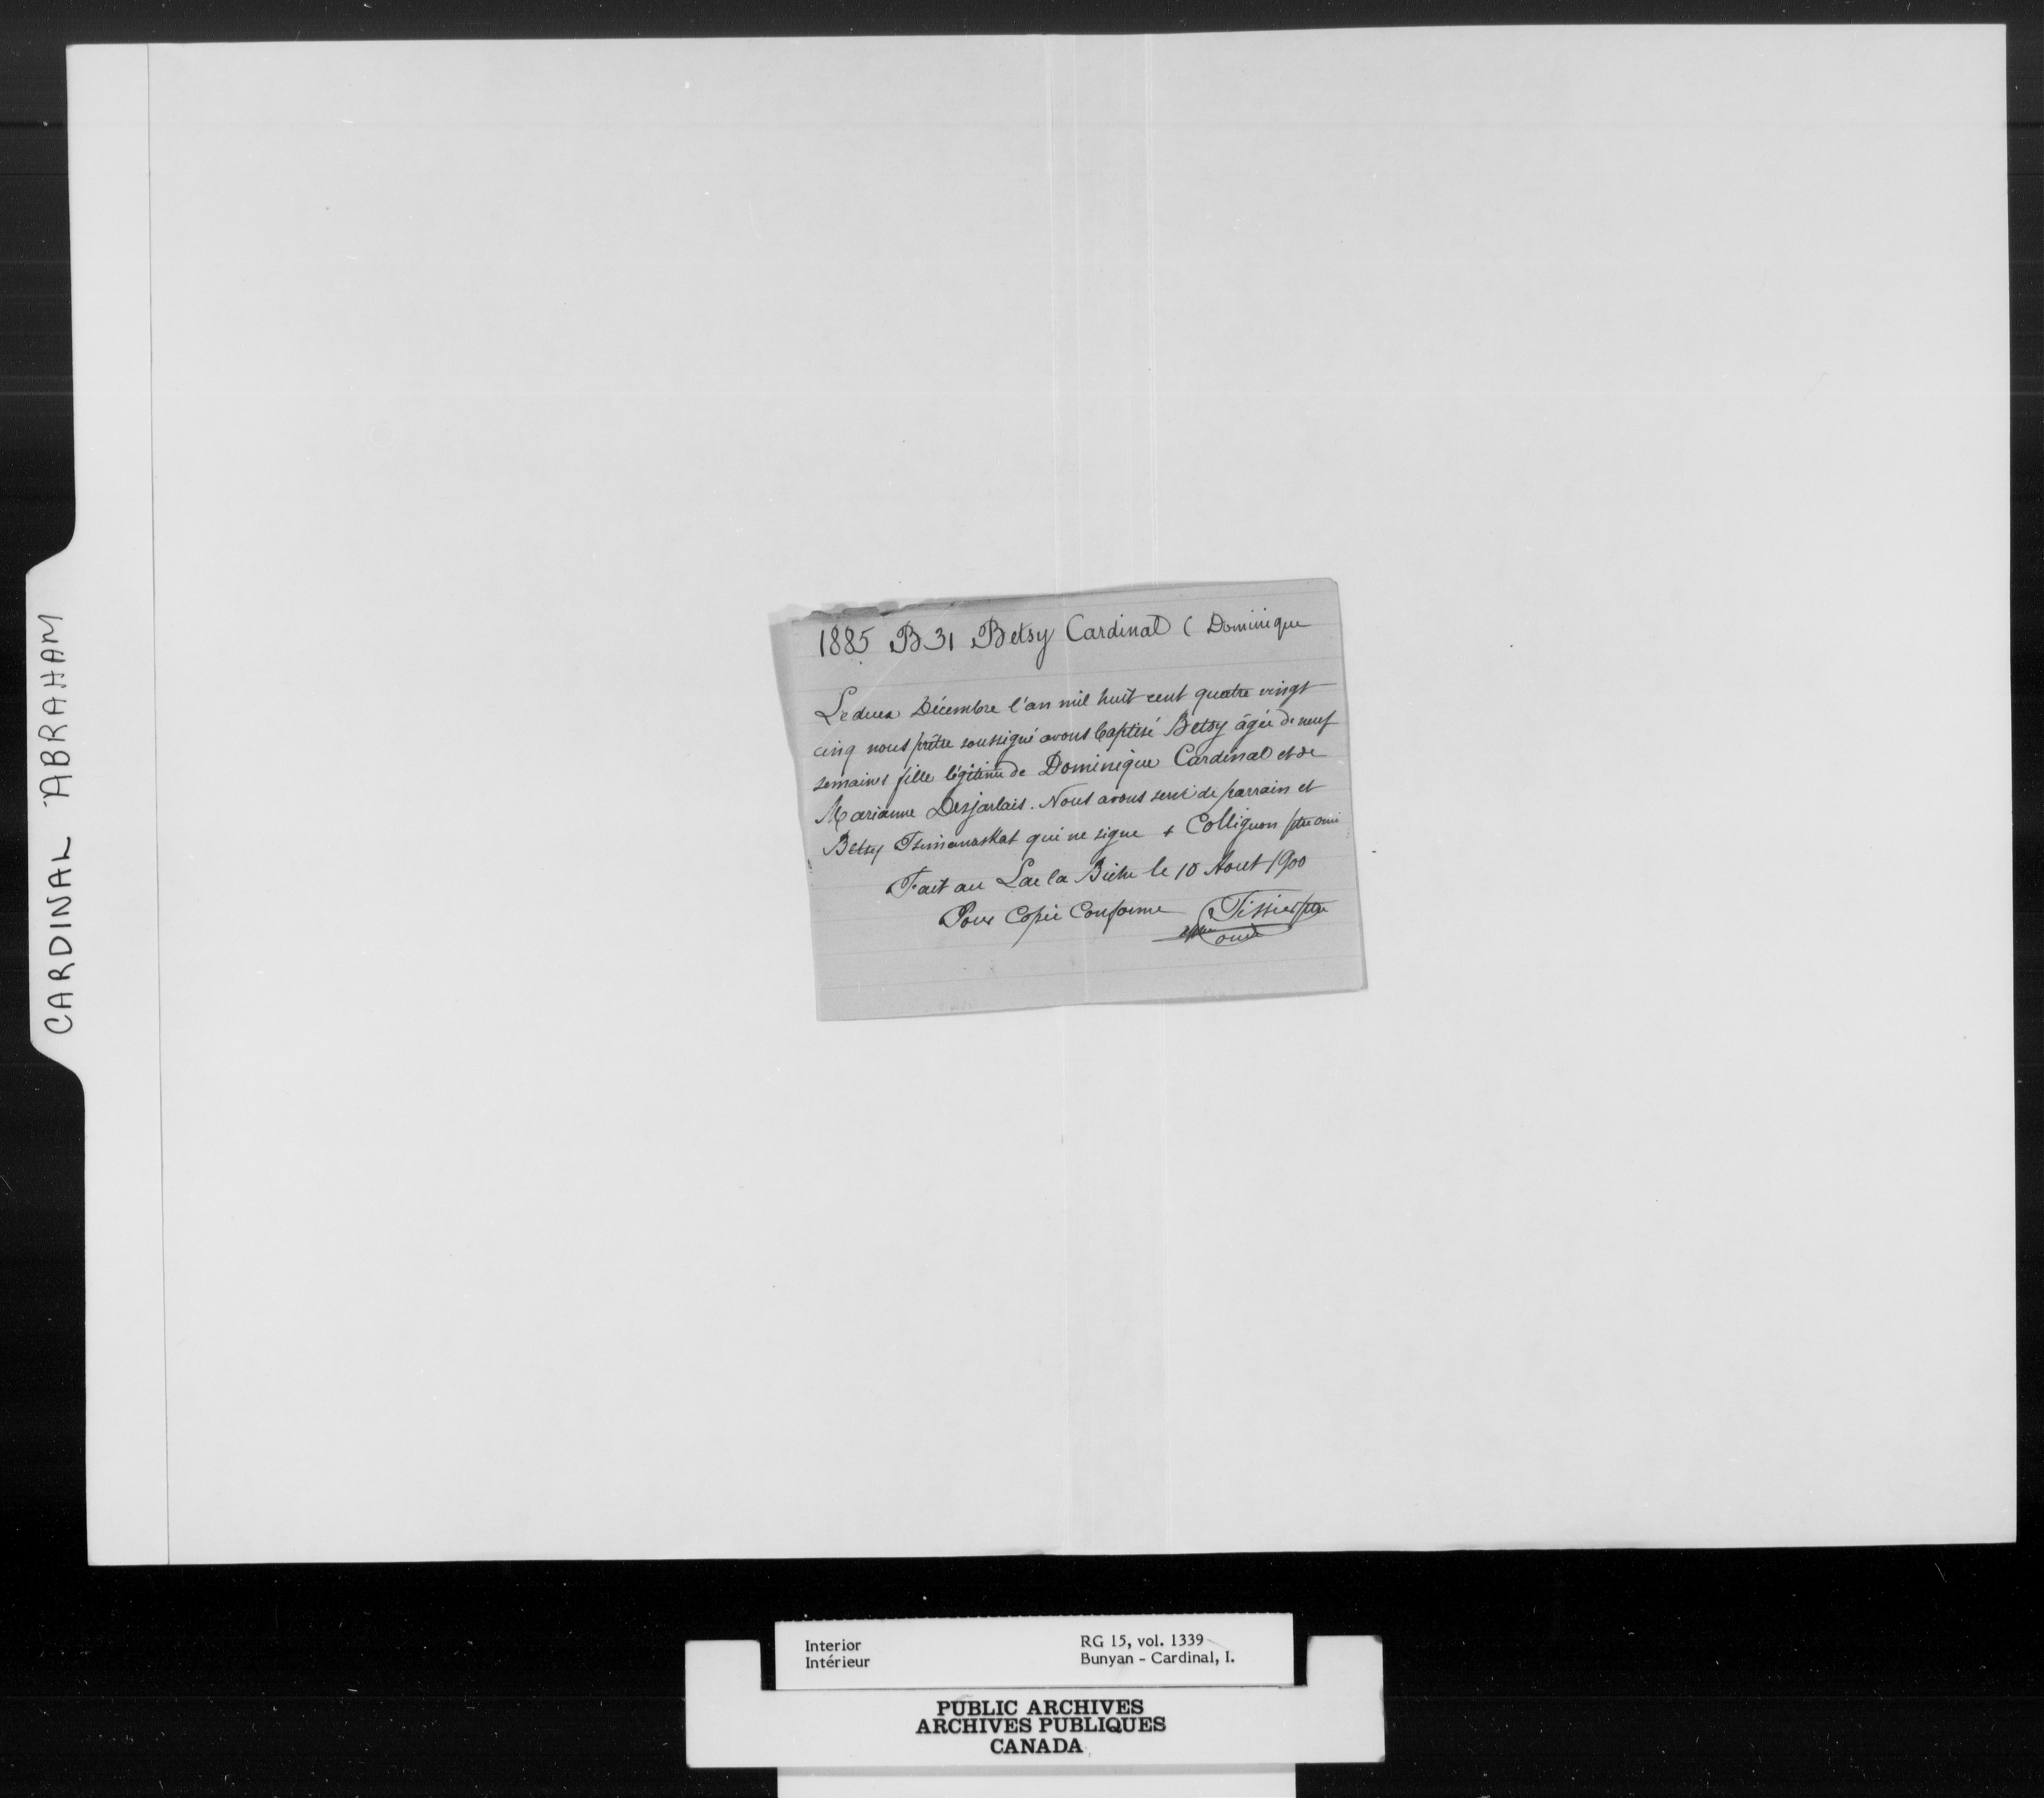 CARDINAL ABRAHAM
1885 B31 Betsy Cardinal ( Dominique
Le deux Décembre l'an mil huit cent quatre vingt
cinq nous prêtre soussigné avons baptisé Betsy âgée de neuf
semaines fille légitime de Dominique Cardinal et de
Marianne Desjarlais. Nous avons servi de parrain et
Betsy qui ne signe + Collignon ptre omi
Fait au Lac la Biche le 10 Aout 1900
Pour Copie Conforme Tissier ptre
omi
Interior
Intérieur
RG 15, vol. 1339
Bunyan - Cardinal, I.
PUBLIC ARCHIVES
ARCHIVES PUBLIQUES
CANADA